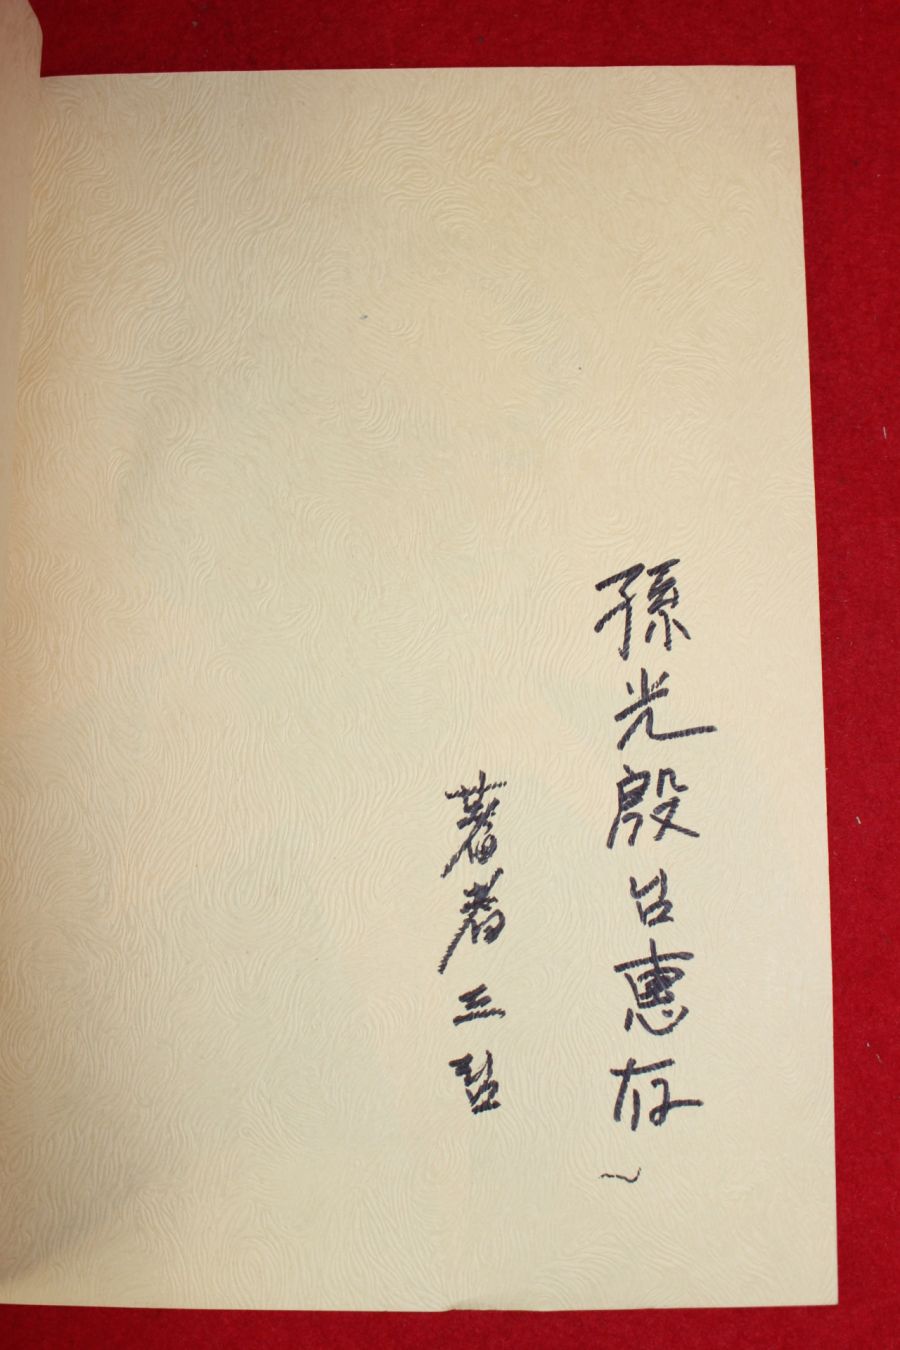 孫光殷 兄 惠存
著者 三哲